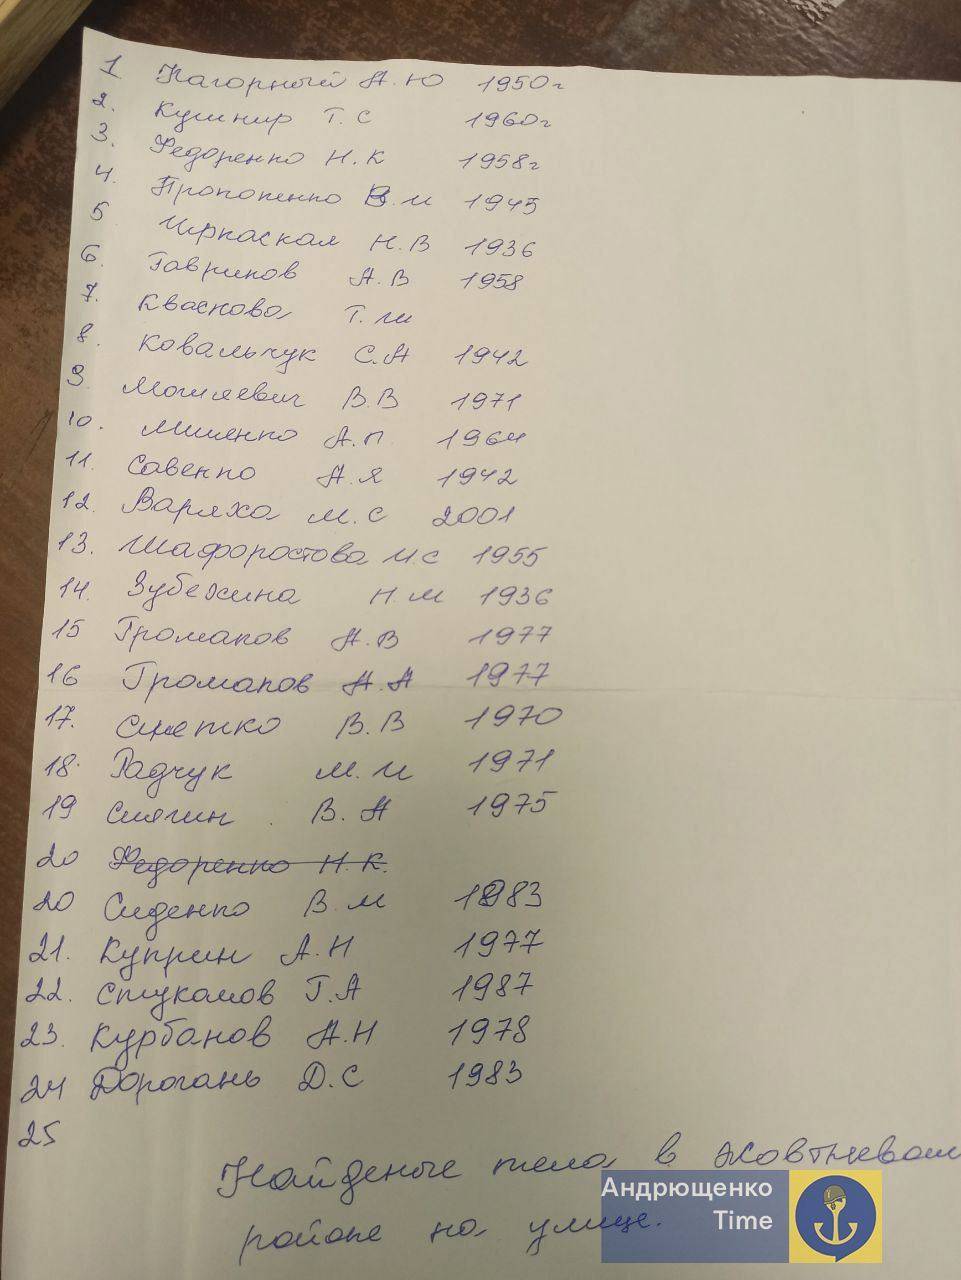 1 Нагорный А.Ю 1950г
2. Кушнир Т.С 1960г
3. Федоренко Н.К 1958г
4. Прокопенко В.И 1945
5 Черкаская Н.В 1936
6. Гавриков А.В 1958
7. Кваскова Т.
8. Ковальчук С.А 1942
9. В.В 1971
10. А.П. 1964
11. Савенко А.Я 1942
12. Варяха М.С 2001
13. Шафоростова И.С 1955
14. Зубехина Н.М 1936
15 Громаков А.В 1977
16 Громаков А.А 1977
17. В.В 1970
18. Радчук М.И 1971
19 В.А 1975
20 Федоренко Н.К.
20 Сиденко В.М 1983
21. Куприн А.Н 1977
22. Стукалов Г.А 1987
23. Курбанов А.Н 1978
24 Дорогань Д.С 1983
25
Найденые тела в Жовтневом
районе на улице.
Андрющенко
Time